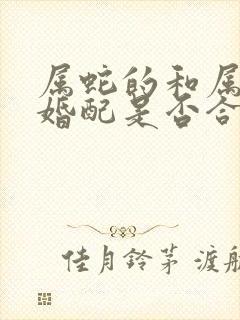 属蛇的和属
婚配是否合
佳月铃茅 渡航